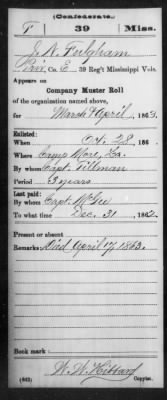 (Confederate.)
39 Miss.
J. N. Fulgham
Priv, Co. E, 39 Reg't Mississippi Vols.
Appears on
Company Muster Roll
of the organization named above,
for March & April, 1863.
Enlisted:
When Oct. 28, 186
Where Camp Moore, La.
By whom Capt. Tillman
Period 3 years
Last paid:
By whom Capt. McGee
To what time Dec. 31, 1862.
Present or absent
Remarks: Died April 17, 1863.
Book mark:
(642)
Copyist.